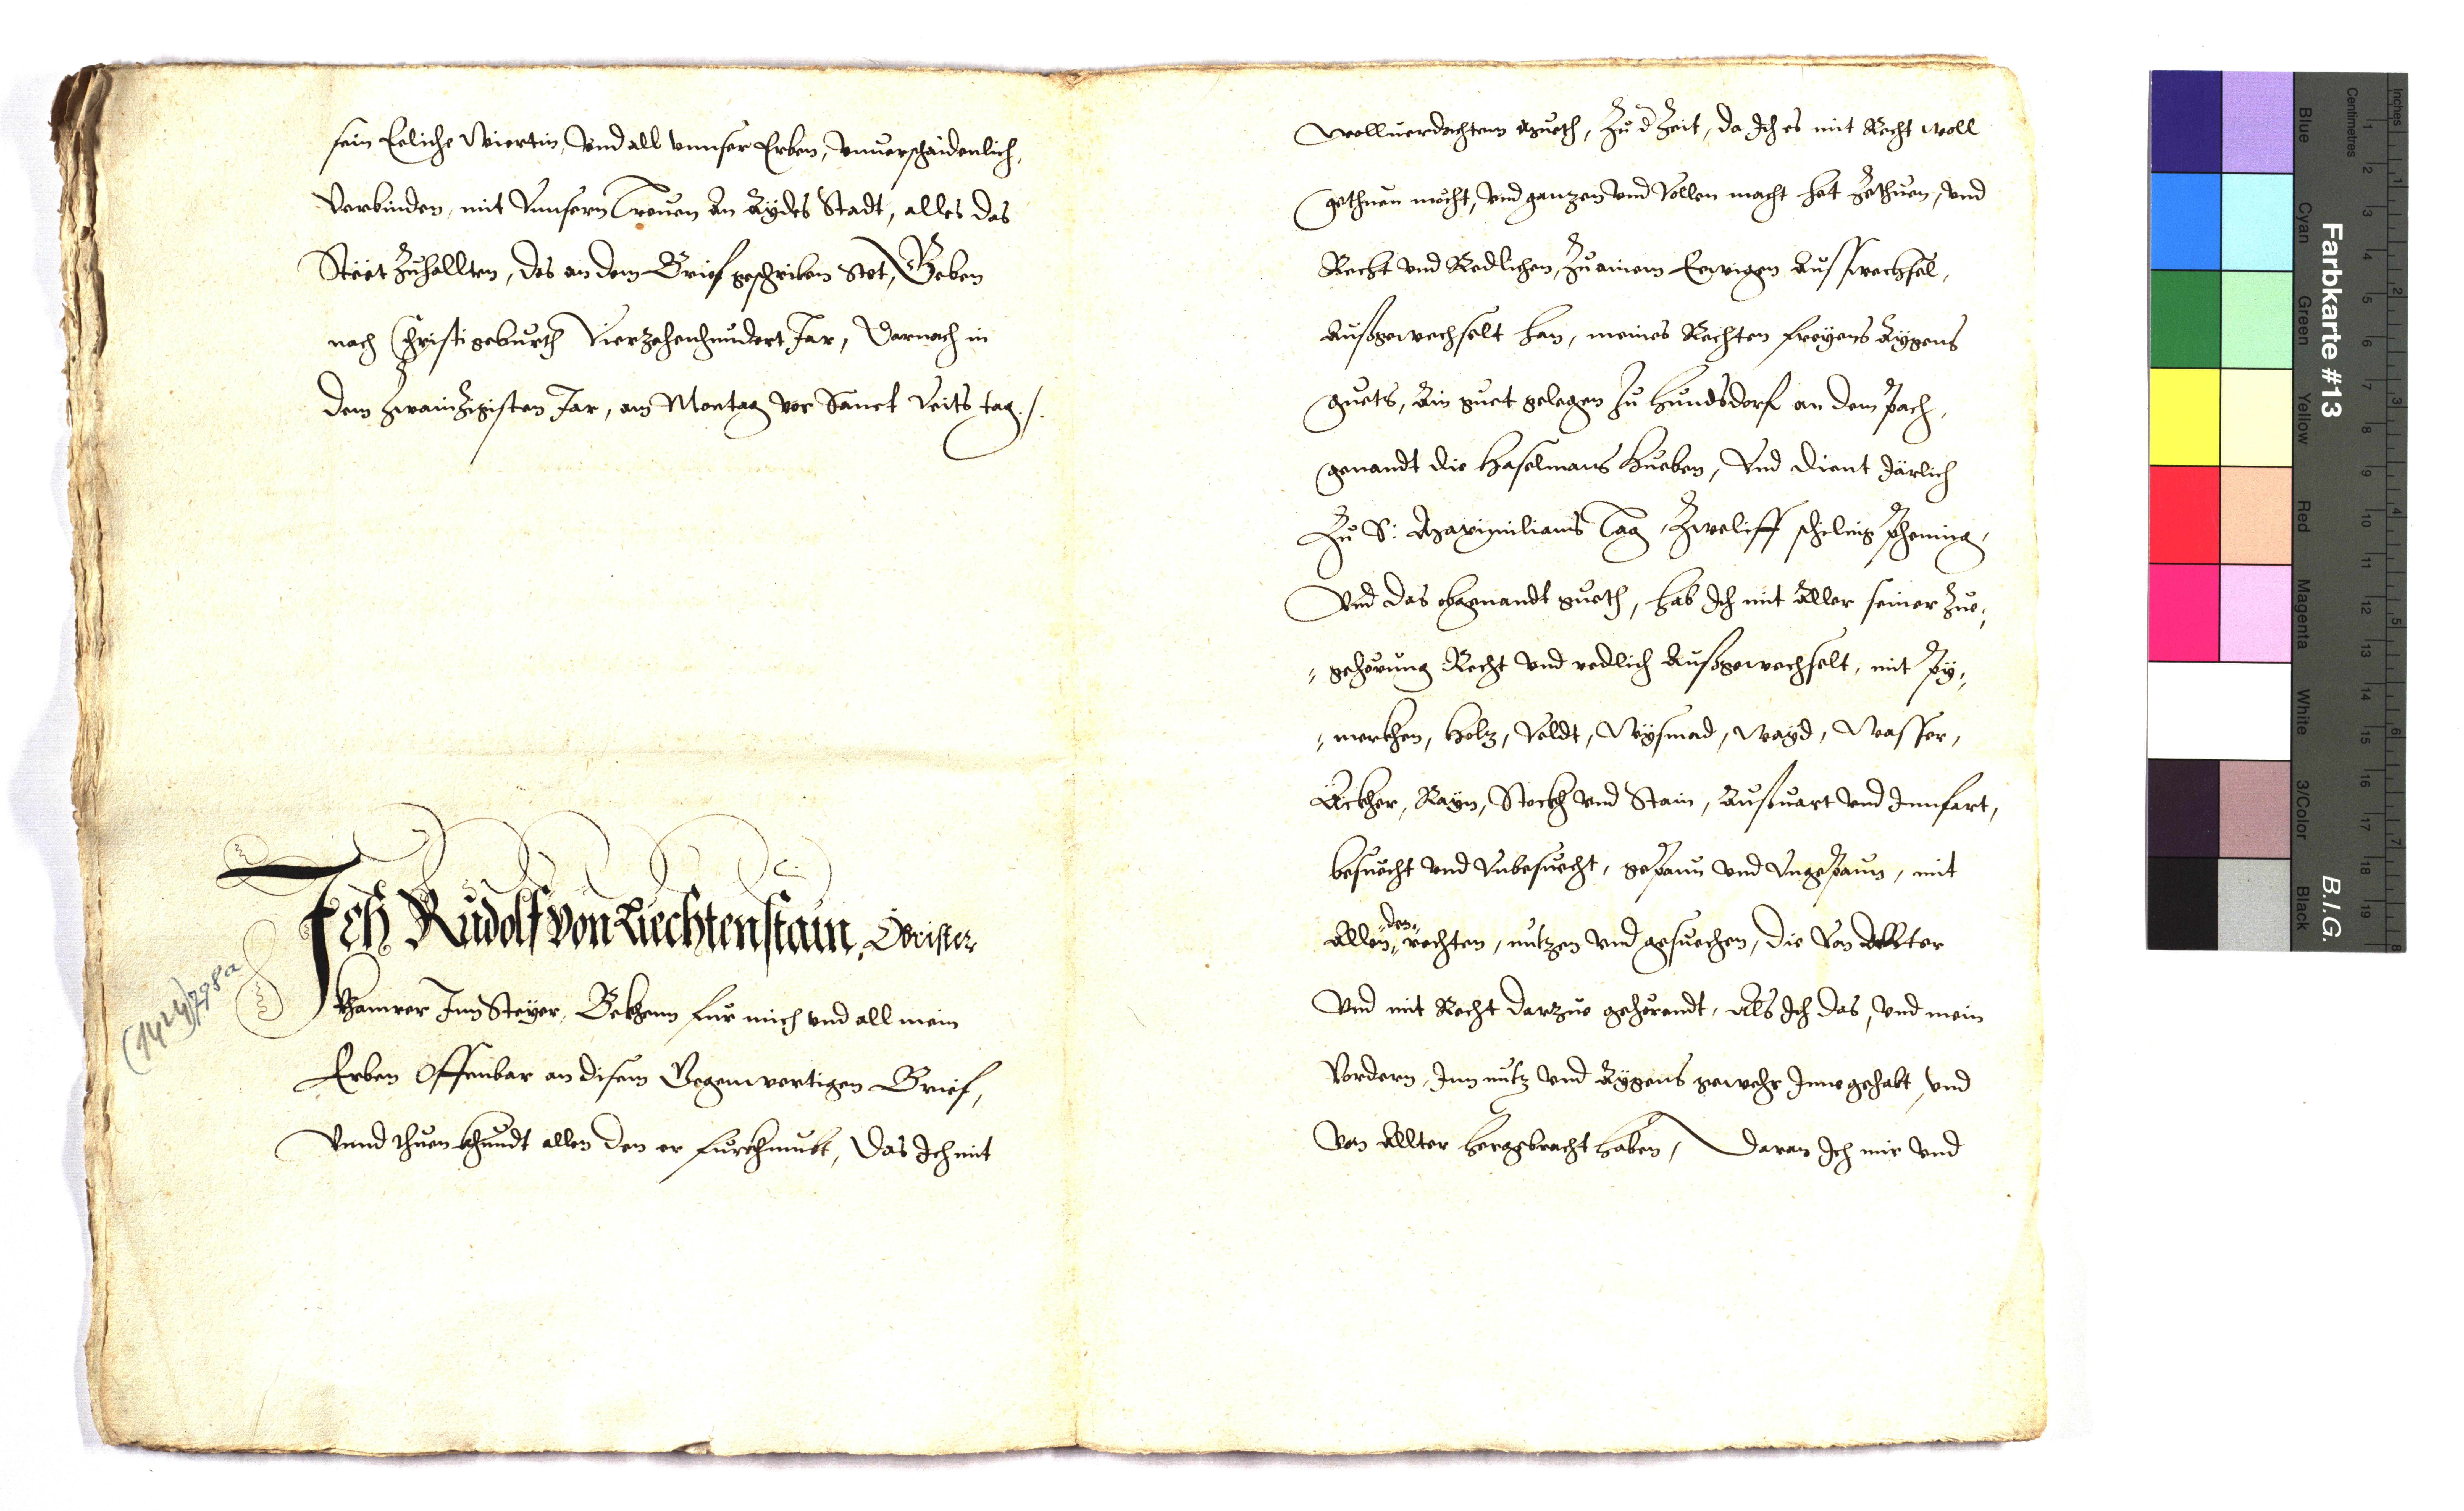 sein Eeliche Wiertin, Vnd all vnnser Erben, vnuerschaidenlich,
Verbinden, mit Vnnsern Treuen An Aydes Stadt, alles das
Stëët Zuhallten, des an dem Brief geschriben Stet, Geben
nach Christi geburth Vierzehenhundert Jar, Darnach in
dem Zwainzigisten Jar, am Montag vor Sanct Veits tag ./.
Ich Rudolf von Liechtenstain, Obrister
Chamrer Inn Steyer, Bekhenn fur mich vnd all mein
Erben Offenbar an disem Gegenwertigen Brief,
Vnnd thuen khundt allen den er furkhumbt, Das Ich mit
(1424) 798a
wolluerdachtem mueth, Zu d Zeit, da Ich es mit Recht woll
gethuen mocht, vnd ganzen vnd Vollen macht het Zethuen, vnd
Recht vnd Redlichen, Zu ainem Eewigen Ausswechsel,
Außgewechselt han, meines Rechten freyens Aygens
guets, Ain guet gelegen Zu Hundsdorf an dem Pach,
genandt die Haselmans Hueben, Vnd dient Järlich
Zu S: Maximilians Tag, Zweliff schilling phening,
Vnd das obgenandt gueth, hab Ich mit Aller seiner Zue,,
,, gehörung Recht vnd redlich Außgewechselt, mit Py,,
,, merkhen, Holz, Veldt, Wysmad, Wayd, Wasser,
Äckher, Rayn, Stockh vnd Stain, Außuart vnd Innfart,
besuecht vnd Vnbesuecht, gepaun vnd Vngepaun, mit
Allen ,,den,, rechten, nutzen vnd gesuechen, die Von Allter
Vnd mit Recht darzue gehörendt, Als Ich das, vnd mein
Vordern, Inn nutz vnd Aygens gewehr Innegehabt, vnd
Von Allter hergebracht haben, Daran Ich mir vnd
Farbkarte #13
B.I.G.
Inches
Centimetres
Blue
Cyan
Green
Yellow
Red
Magenta
White
3/Color
Black
1 2 3 4 5 6 7 8 9 10 11 12 13 14 15 16 17 18 19
1 2 3 4 5 6 7 8